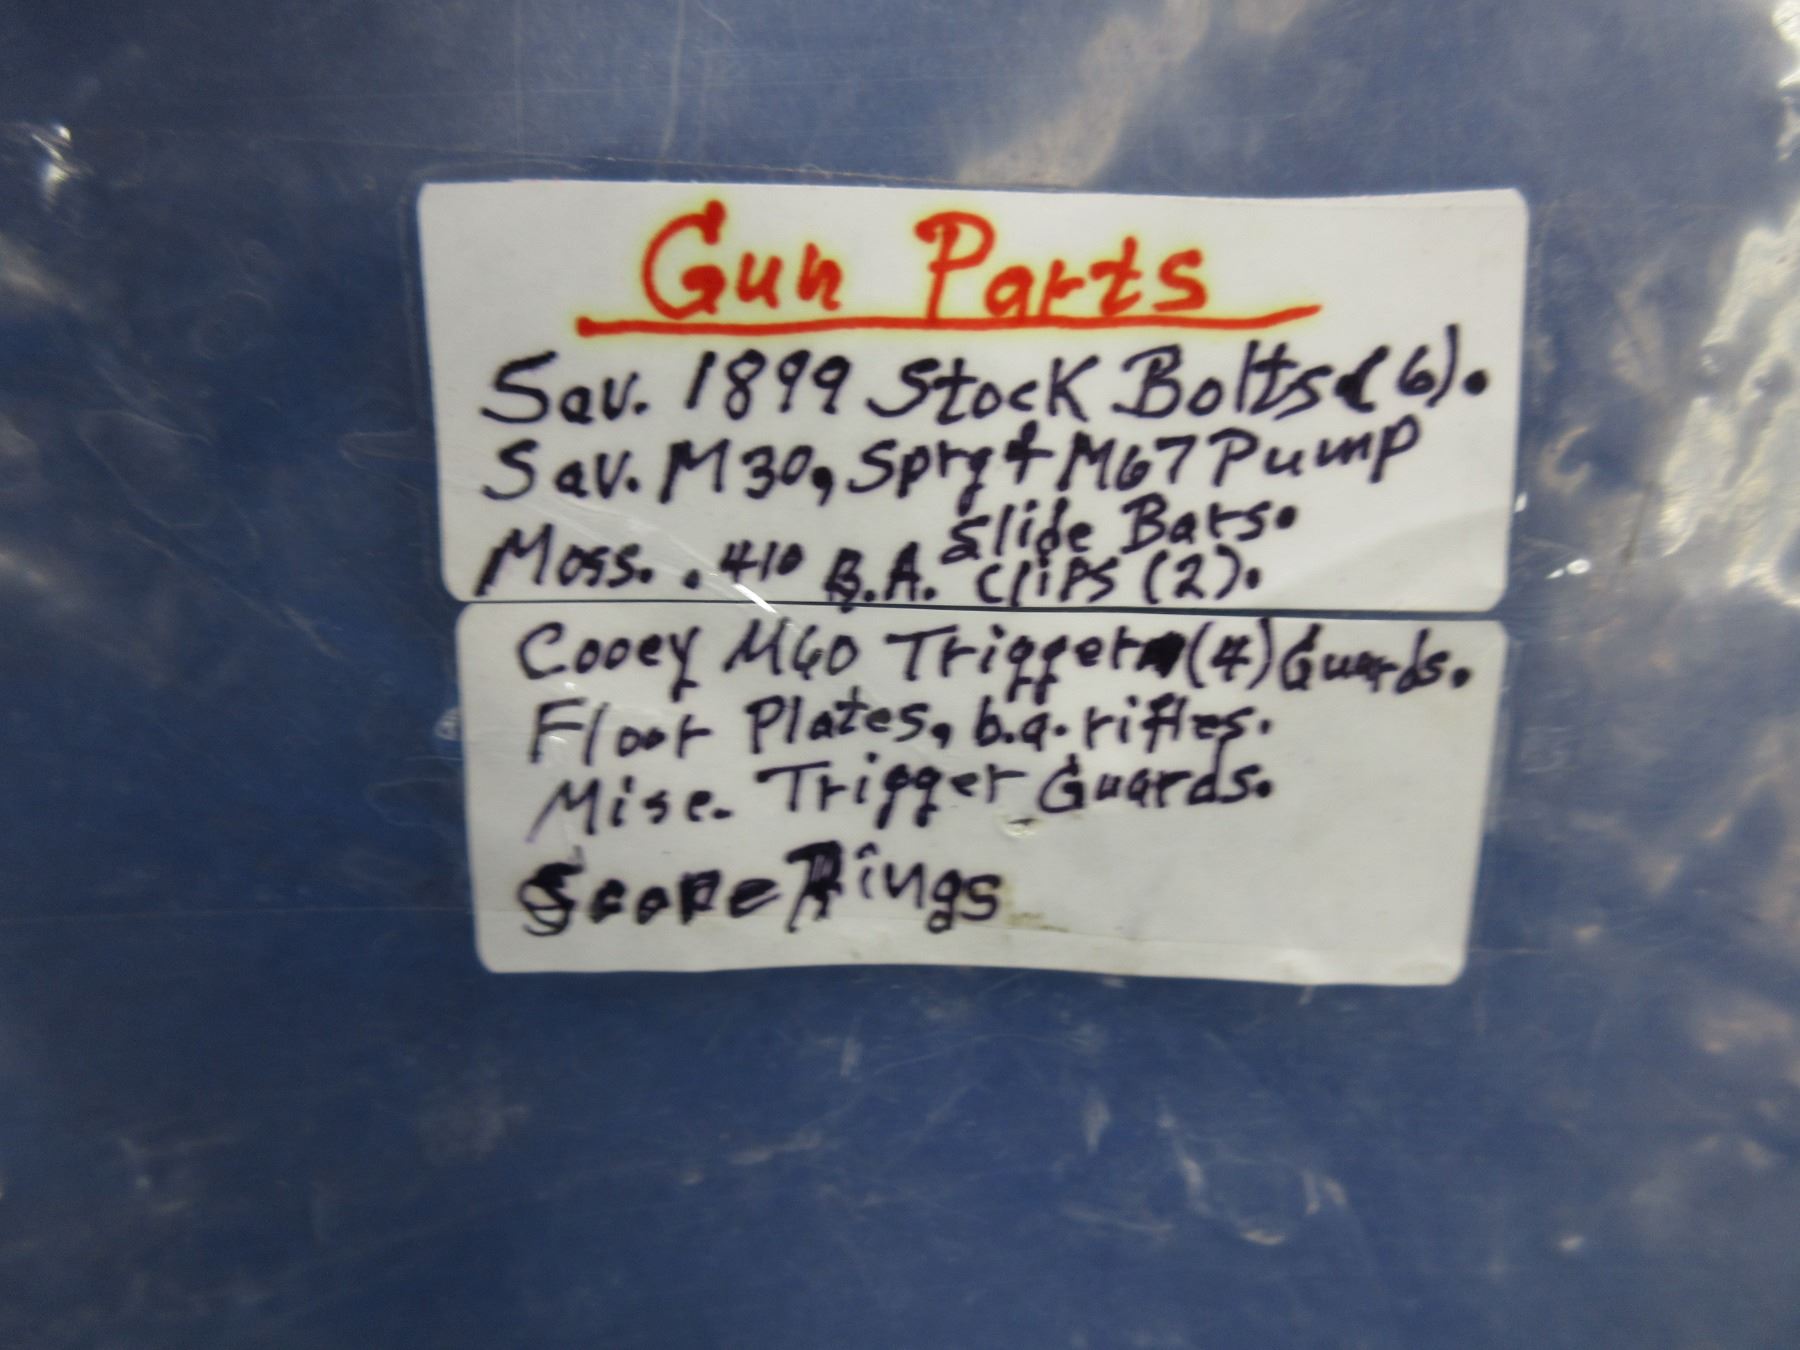 Gun Parts
Sav. 1899 Stock Bolts (6).
Sav. M30, Sprg + M67 Pump
Slide Bars.
Moss. .410 B.A. Clips (2).
Cooey M60 Trigger (4) Guards.
Floor Plates, b.a. rifles.
Misc. Trigger Guards.
Scope Rings